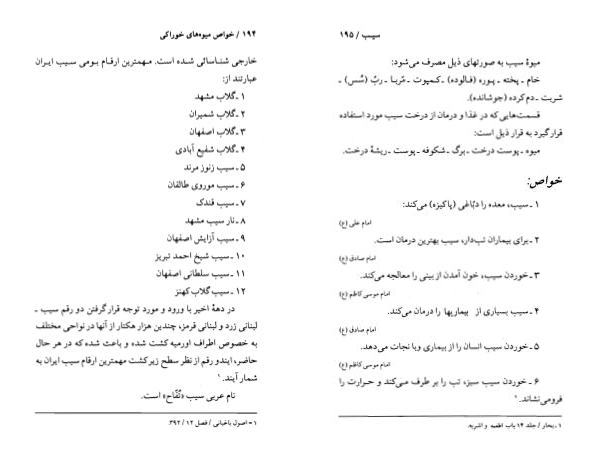 ۱۹۴ / خواص میوه‌های خوراکی
خارجی شناسائی شده است. مهمترین ارقام بومی سیب ایران
عبارتند از:
۱ ـ گلاب مشهد
۲ ـ گلاب شمیران
۳ ـ گلاب اصفهان
۴ ـ گلاب شفیع آبادی
۵ ـ سیب زنوز مرند
۶ ـ سیب موروی طالقان
۷ ـ سیب قندک
۸ ـ نار سیب مشهد
۹ ـ سیب آزایش اصفهان
۱۰ ـ سیب شیخ احمد تبریز
۱۱ ـ سیب سلطانی اصفهان
۱۲ ـ سیب گلاب کهنز
در دههٔ اخیر با ورود و مورد توجه قرار گرفتن دو رقم سیب ـ
لبنانی زرد و لبنانی قرمز، چندین هزار هکتار از آنها در نواحی مختلف
به خصوص اطراف اورمیه کشت شده و باعث شده که در هر حال
حاضر، ایندو رقم از نظر سطح زیرکشت مهمترین ارقام سیب ایران به
شمار آیند.۱
نام عربی سیب «تُفّاح» است.
۱ - اصول باغبانی / فصل ۱۲ / ۳۹۲
سیب / ۱۹۵
میوهٔ سیب به صورتهای ذیل مصرف می‌شود:
خام ـ پخته ـ پوره (فالوده) ـ کمپوت ـ مُربا ـ ربّ (سُس) ـ
شربت ـ دم‌کرده (جوشانده).
قسمت‌هایی که در غذا و درمان از درخت سیب مورد استفاده
قرار گیرد به قرار ذیل است:
میوه ـ پوست درخت ـ برگ ـ شکوفه ـ پوست ـ ریشهٔ درخت.
خواص:
۱ ـ سیب، معده را دبّاغی (پاکیزه) می‌کند:
امام علی (ع)
۲ ـ برای بیماران تب‌دار، سیب بهترین درمان است.
امام صادق (ع)
۳ ـ خوردن سیب، خون آمدن از بینی را معالجه می‌کند.
امام موسی کاظم (ع)
۴ ـ سیب بسیاری از بیماریها را درمان می‌کند.
امام صادق (ع)
۵ ـ خوردن سیب انسان را از بیماری وبا نجات می‌دهد.
امام موسی کاظم (ع)
۶ ـ خوردن سیب سبز، تب را بر طرف می‌کند و حرارت را
فرومی‌نشاند.۱
۱ ـ بحار / جلد ۱۴ باب اطعمه و اشربه.